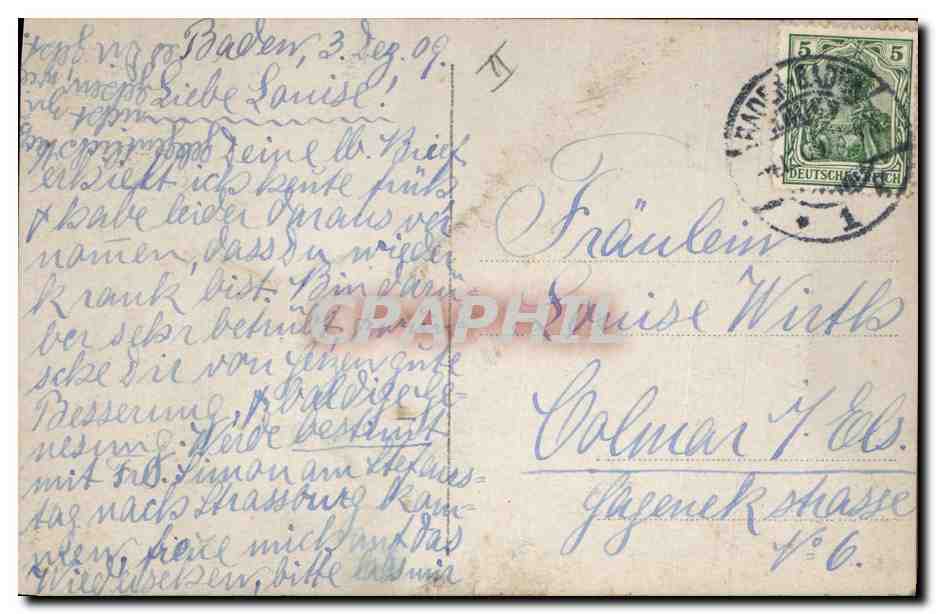 Baden, 3. Dez. 09.
Liebe Louise!
Deine lb. Brief
erhielt ich heute früh
& habe leider daraus ver
nom̄en, dass Du wieder
krank bist. Bin darü-
ber sehr betrübt
Dir von Herzen gute
Besserung, & baldige Ge-
nesung. Werde bestim̄t
mit Frl. Simon am Stefans-
tag nach Strassburg kom-
men, freue mich auf das
Wiedersehen, bitte lass mir
5 5
DEUTSCHES REICH
BADEN
1
Fräulein
Louise Wirth
Colmar i/Els.
Gagenek strasse
No 6.
CPAPHIL